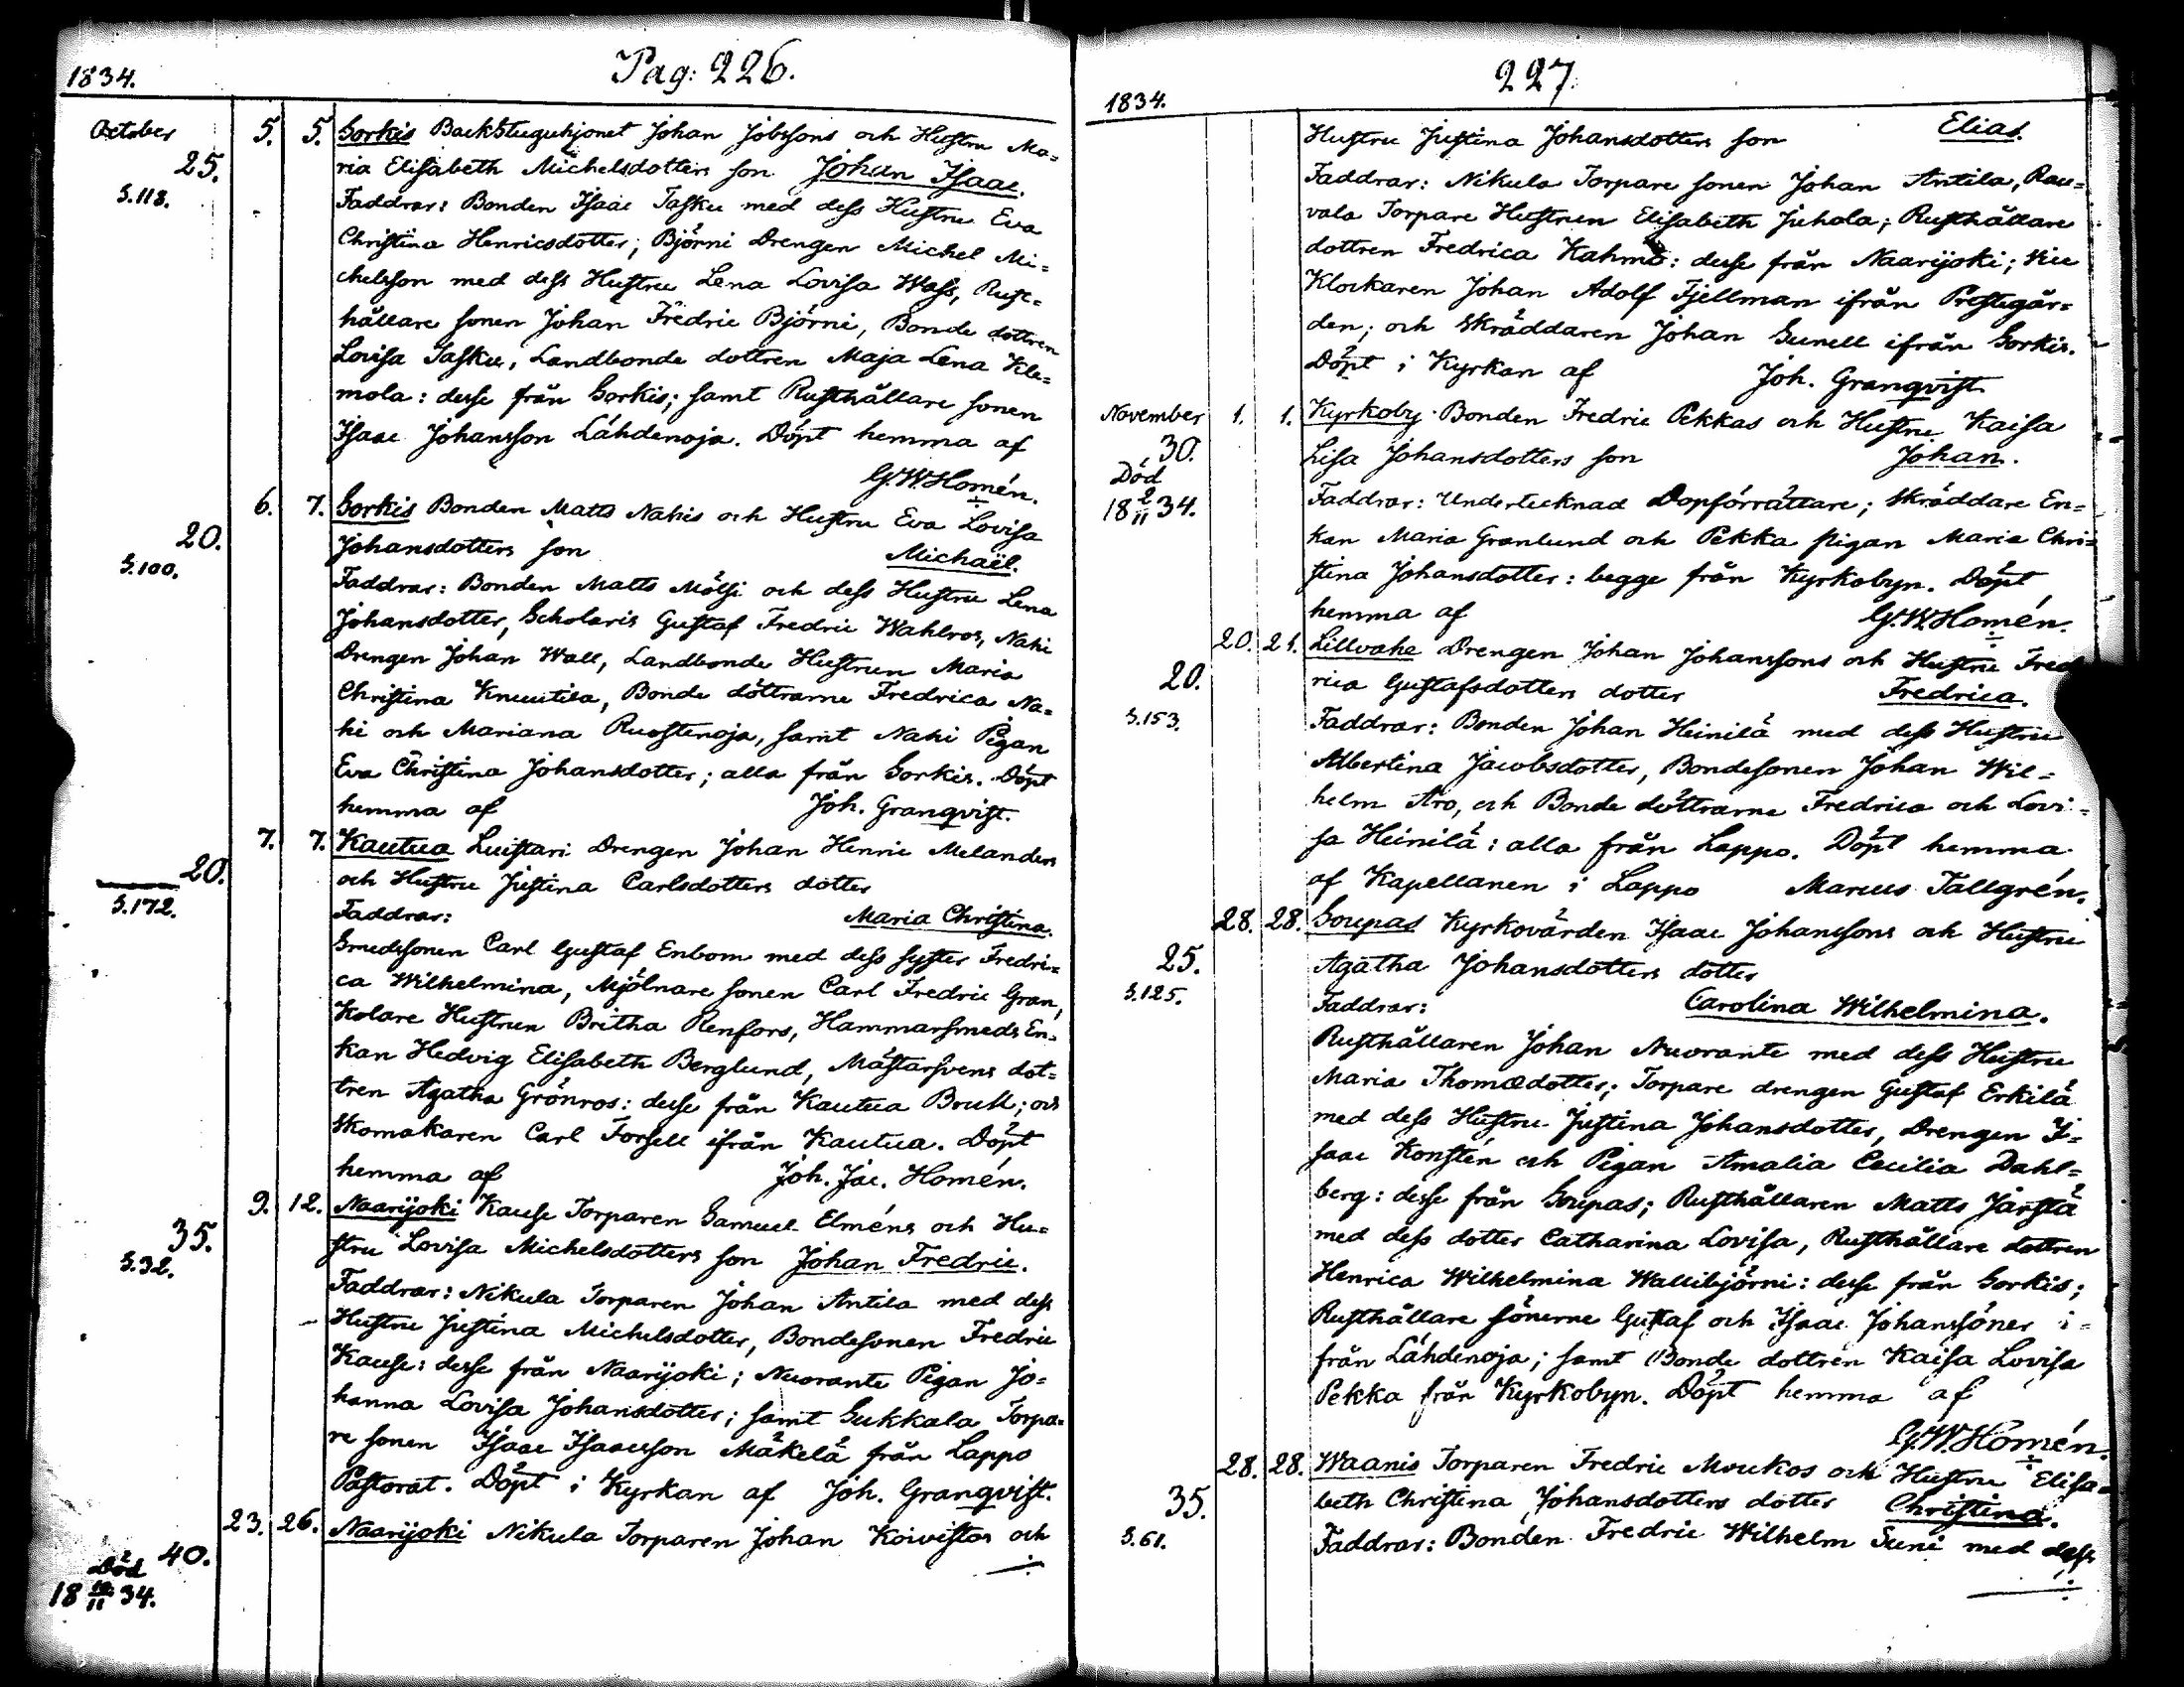 Pag: 226.
1834.
October 5. 5. Sorkis Backstuguhjonet Johan Jobssons och Hustru Ma=
25. ria Elisabeth Michelsdotters son Johan Isaac.
S.118. Faddrar: Bonden Isaac Tasku med dess Hustru Eva
Christina Henricsdotter; Björni Drengen Michel Mi=
chelsson med dess Hustru Lena Lovisa Wass, Rust=
hållare sonen Johan Fredric Björni, Bonde dottren
Lovisa Tasku, Landbonde dottren Maja Lena Kle=
mola: desse från Sorkis; samt Rusthållare sonen
Isaac Johansson Lähdenoja. Döpt hemma af
G.W.Homén.
6. 7. Sorkis Bonden Matts Nahis och Hustru Eva Lovisa
20. Johansdotters son Michaël.
S.100. Faddrar: Bonden Matts Mölsi och dess Hustru Lena
Johansdotter, Scholaris Gustaf Fredric Wahlros, Nahi
Drengen Johan Wall, Landbonde Hustrun Maria
Christina Knuutila, Bonde döttrarne Fredrica Na=
hi och Mariana Ruostenoja, samt Nahi Pigan
Eva Christina Johansdotter; alla från Sorkis. Döpt
hemma af Joh. Granqvist.
7. 7. Kautua Luistari Drengen Johan Henric Melanders
20. och Hustru Justina Carlsdotters dotter
S.172. Faddrar: Maria Christina.
Smedssonen Carl Gustaf Enbom med dess syster Fredri=
ca Wilhelmina, Mjölnare sonen Carl Fredric Gran,
Kolare Hustrun Britha Renfors, Hammarsmeds En=
kan Hedvig Elisabeth Berglund, Mästarsvens dot=
tren Agatha Grönros: desse från Kautua Bruk; och
Skomakaren Carl Forsell ifrån Kautua. Döpt
hemma af Joh. Jac. Homén.
9. 12. Naarijoki Kause Torparen Samuel Elméns och Hu=
35. stru Lovisa Michelsdotters son Johan Fredric.
S.32. Faddrar: Nikula Torparen Johan Antila med dess
Hustru Justina Michelsdotter, Bondesonen Fredric
Kause: desse från Naarijoki; Nuorante Pigan Jo=
hanna Lovisa Johansdotter; samt Sukkala Torpa=
re sonen Isaac Isaacsson Mäkelä från Lappo
Pastorat. Döpt i Kyrkan af Joh. Granqvist.
23. 26. Naarijoki Nikula Torparen Johan Koivistos och
40.
Död
18 12/11 34.
227.
1834.
Hustru Justina Johansdotters son Elias.
Faddrar: Nikula Torpare sonen Johan Antila, Rau=
vala Torpare Hustrun Elisabeth Juhola; Rusthållare
dottren Fredrica Kahma: desse från Naarijoki; Vice
Klockaren Johan Adolf Fjellman ifrån Prestegår=
den; och Skräddaren Johan Sunell ifrån Sorkis.
Döpt i Kyrkan af Joh. Granqvist.
November 1. 1. Kyrkoby Bonden Fredric Pekkas och Hustru Kaisa
30. Lisa Johansdotters son Johan.
Död
18 2/11 34. Faddrar: Undertecknad Dopförrättare; Skräddare En=
kan Maria Granlund och Pekka pigan Maria Chri=
stina Johansdotter: begge från Kyrkobyn. Döpt
hemma af G.W.Homén.
20. 21. Lillvahe Drengen Johan Johanssons och Hustru Fred
20. rica Gustafsdotters dotter Fredrica.
S.153. Faddrar: Bonden Johan Heinilä med dess Hustru
Albertina Jacobsdotter, Bondesonen Johan Wil=
helm Aro, och Bonde döttrarne Fredrica och Lovi=
sa Heinilä: alla från Lappo. Döpt hemma
af Kapellanen i Lappo Marcus Tallgrén.
28. 28. Soupas Kyrkovärden Isaac Johanssons och Hustru
25. Agatha Johansdotters dotter
S.125. Faddrar: Carolina Wilhelmina.
Rusthållaren Johan Nuorante med dess Hustru
Maria Thomædotter; Torpare drengen Gustaf Erkilä
med dess Hustru Justina Johansdotter, Drengen I=
saac Konstén och Pigan Amalia Cecilia Dahl=
berg: desse från Soupas; Rusthållaren Matts Järstä
med dess dotter Catharina Lovisa, Rusthållare dottren
Henrica Wilhelmina Wallibjörni: desse från Sorkis;
Rusthållare sönerne Gustaf och Isaac Johanssöner i=
från Lähdenoja; samt Bonde dottren Kaisa Lovisa
Pekka från Kyrkobyn. Döpt hemma af
G.W.Homén.
28. 28. Waanis Torparen Fredric Moukos och Hustru Elisa=
35. beth Christina Johansdotters dotter Christina.
S.61. Faddrar: Bonden Fredric Wilhelm Suni med dess